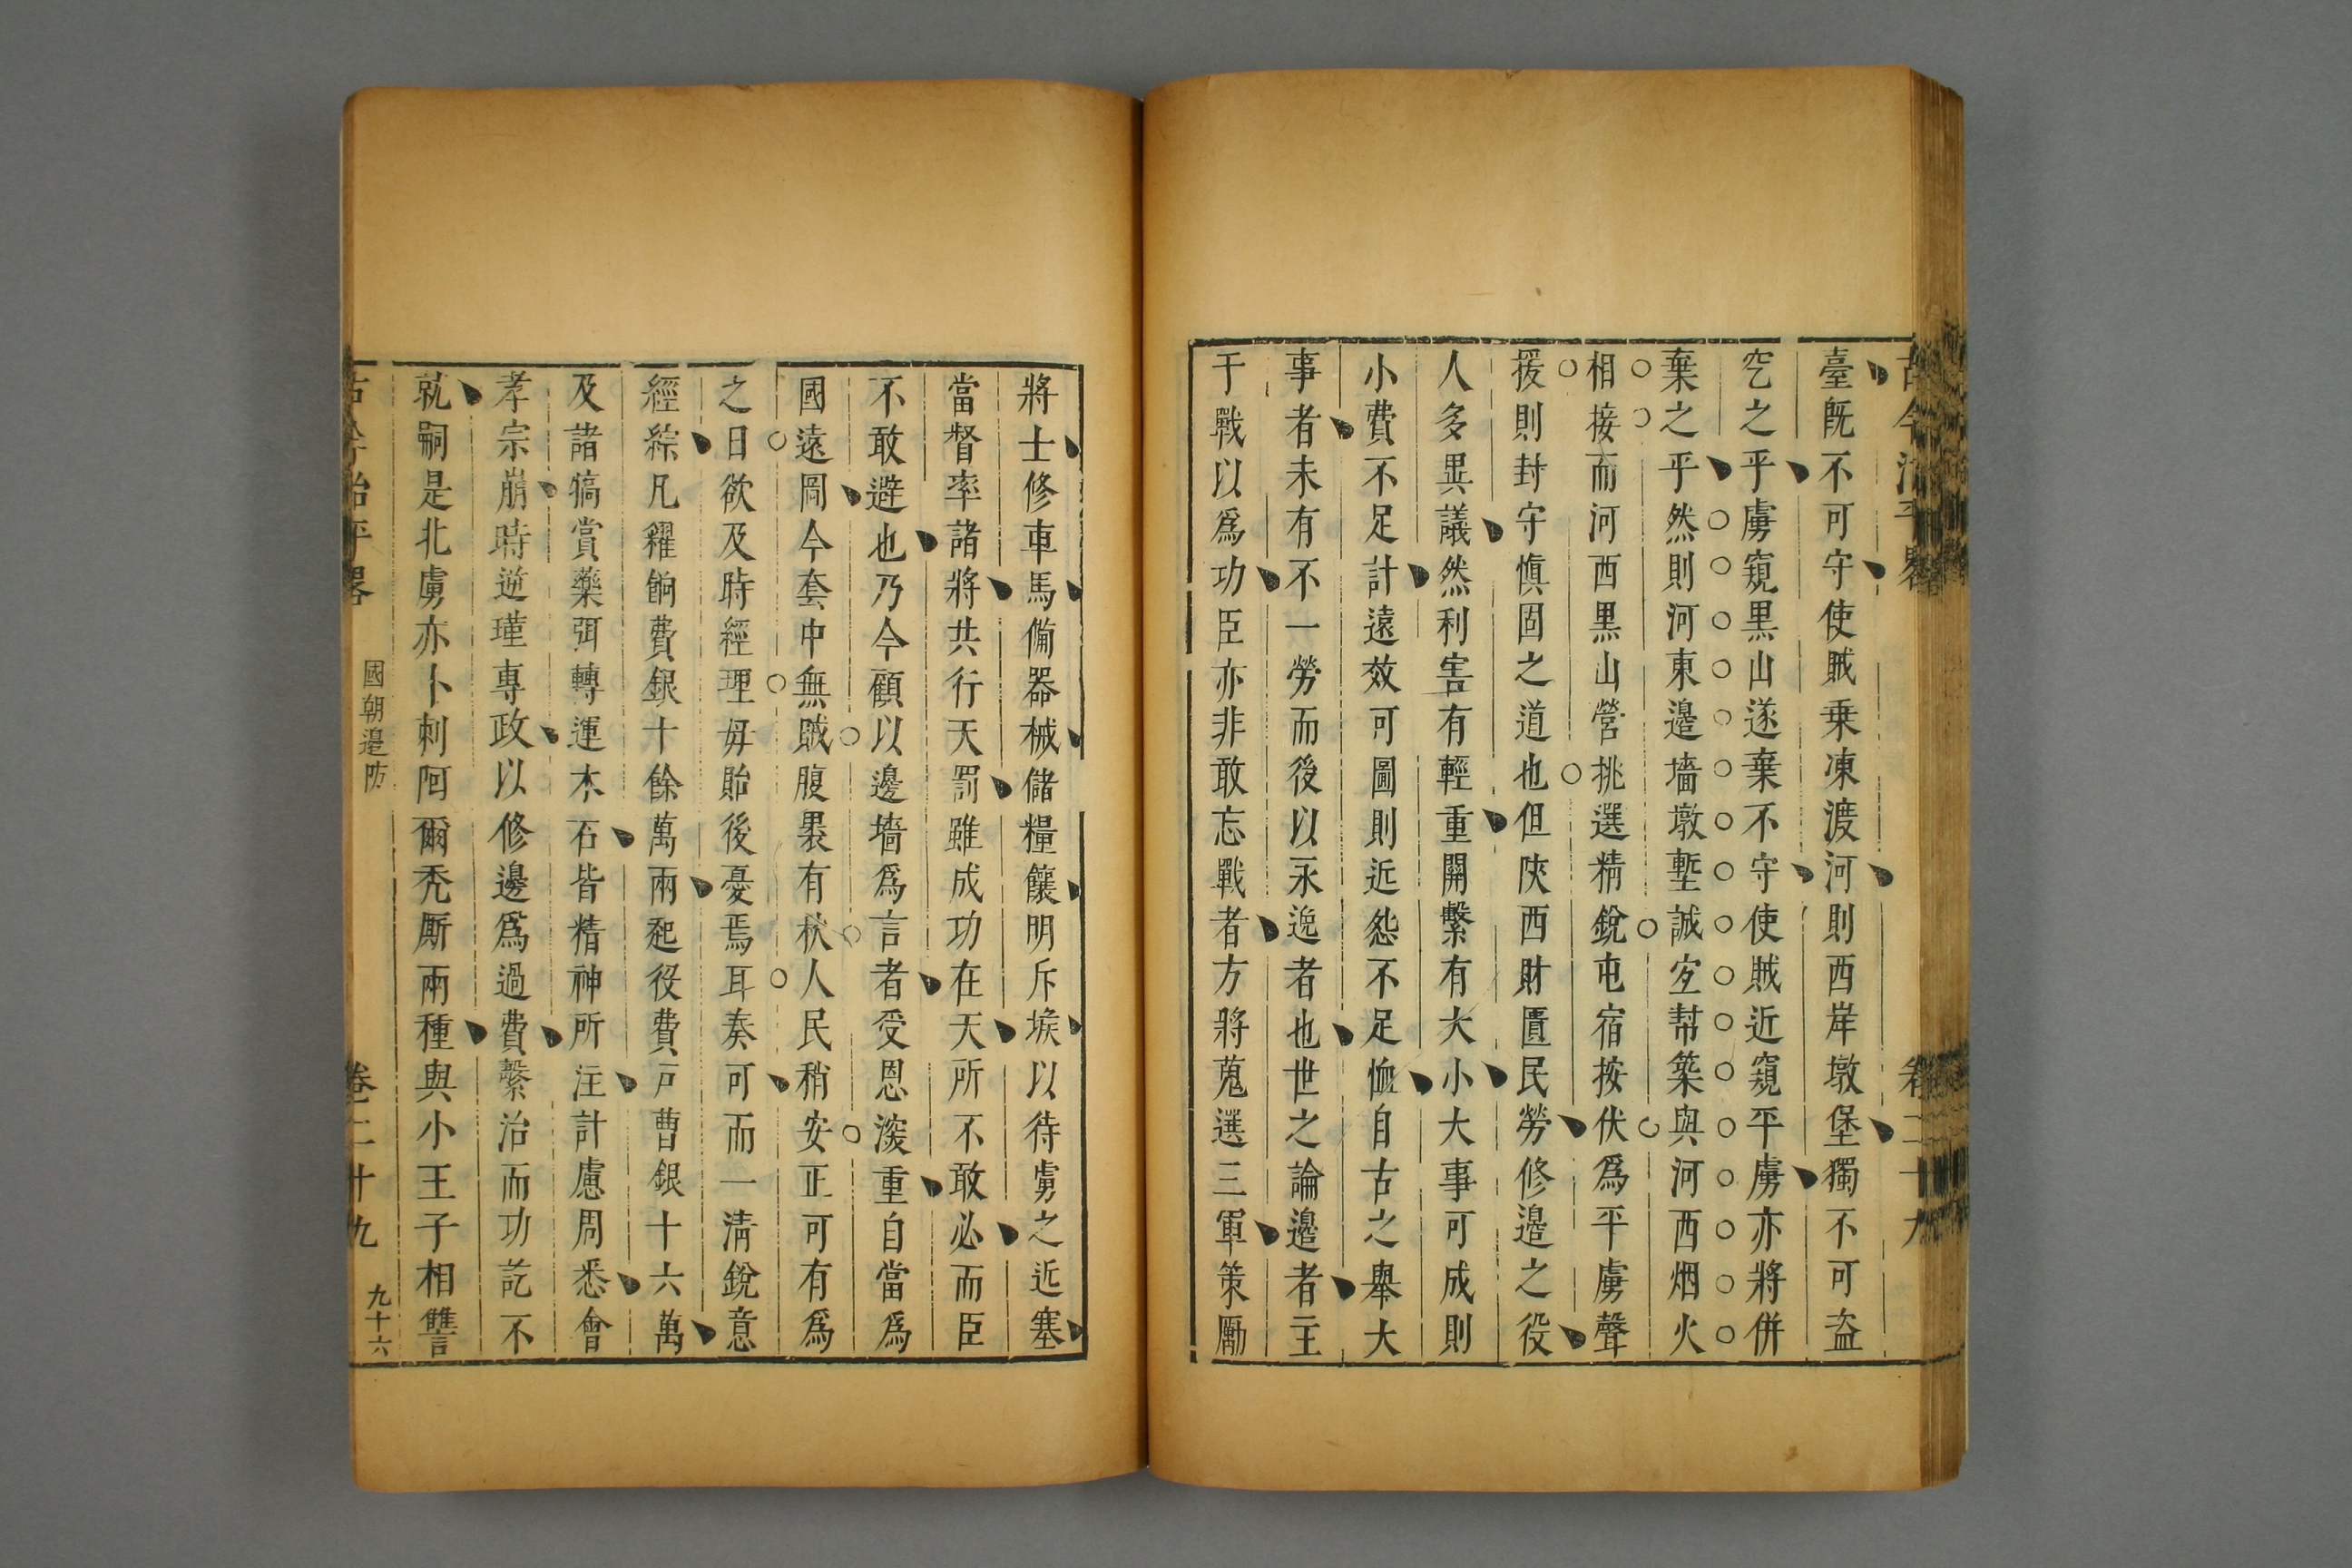 古今治平畧 卷二十九
臺旣不可守使賊乗凍渡河則西岸墩堡獨不可盗
空之乎虜窺黒山遂棄不守使賊近窺平虜亦將併
棄之乎然則河東邉墻墩塹誠宜幇築與河西烟火
相接而河西黒山營挑選精銳屯宿按伏爲平虜聲
援則封守慎固之道也但陝西財匱民勞修邉之役
人多異議然利害有輕重關繫有大小大事可成則
小費不足計遠效可圖則近怨不足恤自古之舉大
事者未有不一勞而後以永逸者也世之論邉者主
于戰以爲功臣亦非敢忘戰者方將蒐選三軍策勵
將士修車馬備器械儲糧饟明斥堠以待虜之近塞
當督率諸將共行天罰雖成功在天所不敢必而臣
不敢避也乃今顧以邊墻爲言者受恩深重自當爲
國遠圖今套中無賊腹裏有秋人民稍安正可有爲
之日欲及時經理毋貽後憂焉耳奏可而一淸銳意
經綜凡糴餉費銀十餘萬兩起役費戸曹銀十六萬
及諸犒賞藥弭轉運木石皆精神所注計慮周悉會
孝宗崩時逆瑾專政以修邊爲過費繫治而功訖不
就嗣是北虜亦卜刺阿爾禿厮兩種與小王子相讐
古今治平畧 國朝邉防 卷二十九 九十六